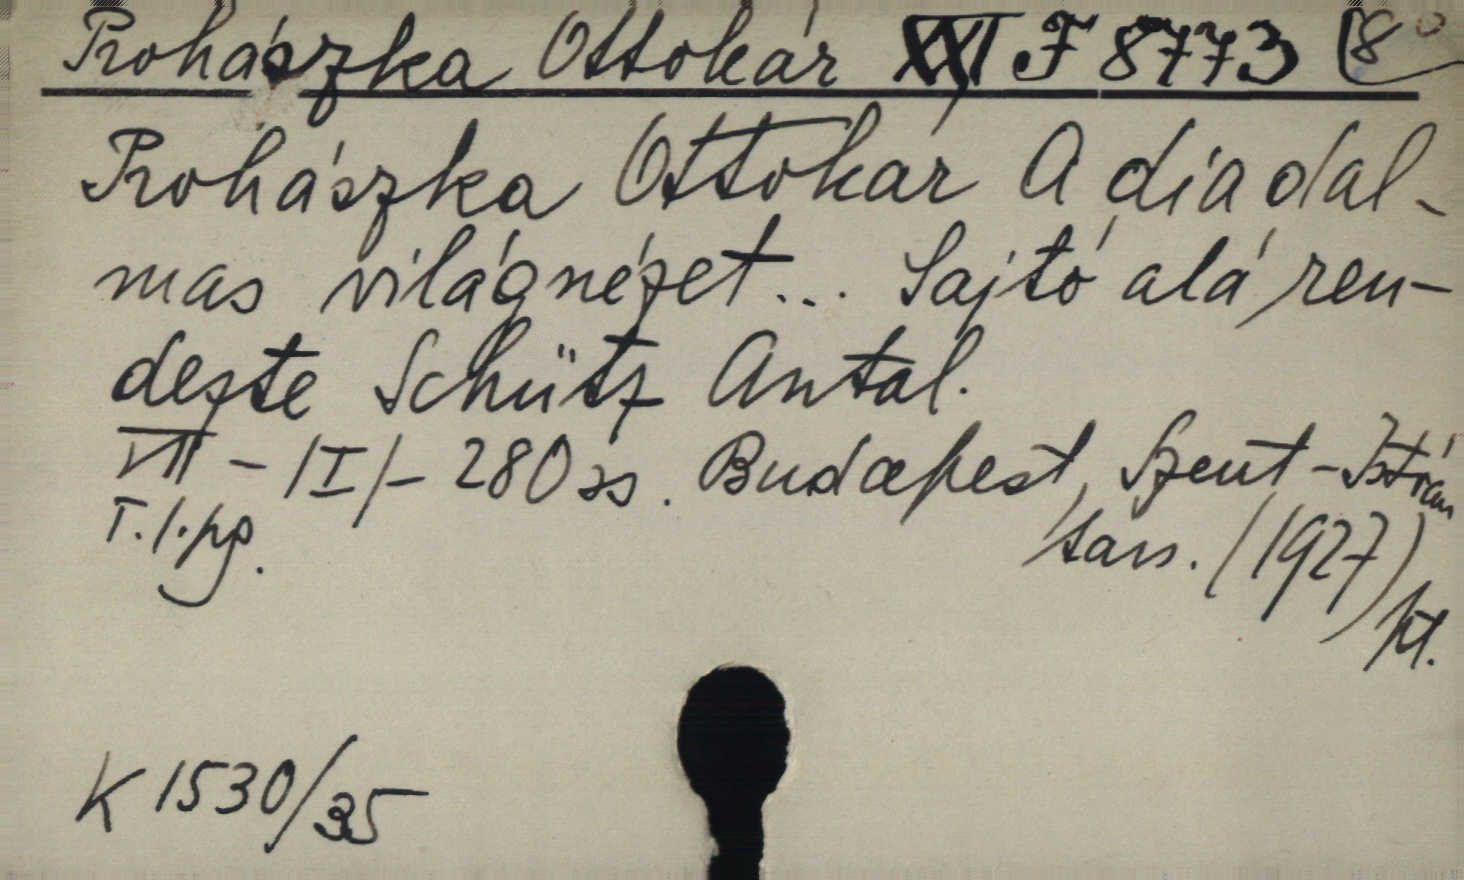 Prohászka Ottokár XXI F 8773 8°
Prohászka Ottokár A diadal-
mas világnézet... Sajtó alá ren-
dezte Schütz Antal.
VII - |I| - 280 ss. Budapest, Szent-István
T. l. pg. társ. (1927)
kt.
K 1530/35